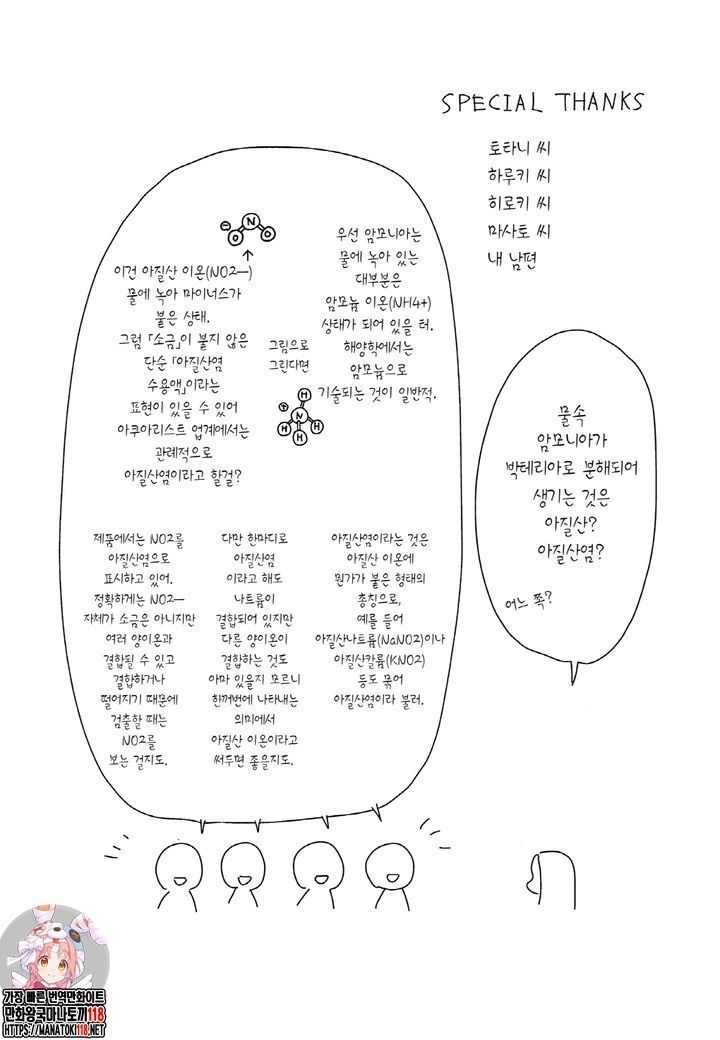 SPECIAL THANKS
토타니 씨
하루키 씨
히로키 씨
마사토 씨
내 남편
물속
암모니아가
박테리아로 분해되어
생기는 것은
아질산?
아질산염?
어느 쪽?
우선 암모니아는
물에 녹아 있는
대부분은
암모늄 이온(NH4+)
상태가 되어 있을 터.
해양학에서는
암모늄으로
기술되는 것이 일반적.
그림으로
그린다면
+
H
N
H
H
H
-
N
O
O
↑
이건 아질산 이온(NO2—)
물에 녹아 마이너스가
붙은 상태.
그럼 「소금」이 붙지 않은
단순 「아질산염
수용액」이라는
표현이 있을 수 있어
아쿠아리스트 업계에서는
관례적으로
아질산염이라고 할걸?
아질산염이라는 것은
아질산 이온에
뭔가가 붙은 형태의
총칭으로,
예를 들어
아질산나트륨(NaNO2)이나
아질산칼륨(KNO2)
등도 묶어
아질산염이라 불러.
다만 한마디로
아질산염
이라고 해도
나트륨이
결합되어 있지만
다른 양이온이
결합하는 것도
아마 있을지 모르니
한꺼번에 나타내는
의미에서
아질산 이온이라고
써두면 좋을지도.
제품에서는 NO2를
아질산염으로
표시하고 있어.
정확하게는 NO2—
자체가 소금은 아니지만
여러 양이온과
결합될 수 있고
결합하거나
떨어지기 때문에
검출할 때는
NO2를
보는 걸지도.
가장 빠른 번역만화이트
만화왕국마나토끼118
HTTPS://MANATOKI118.NET